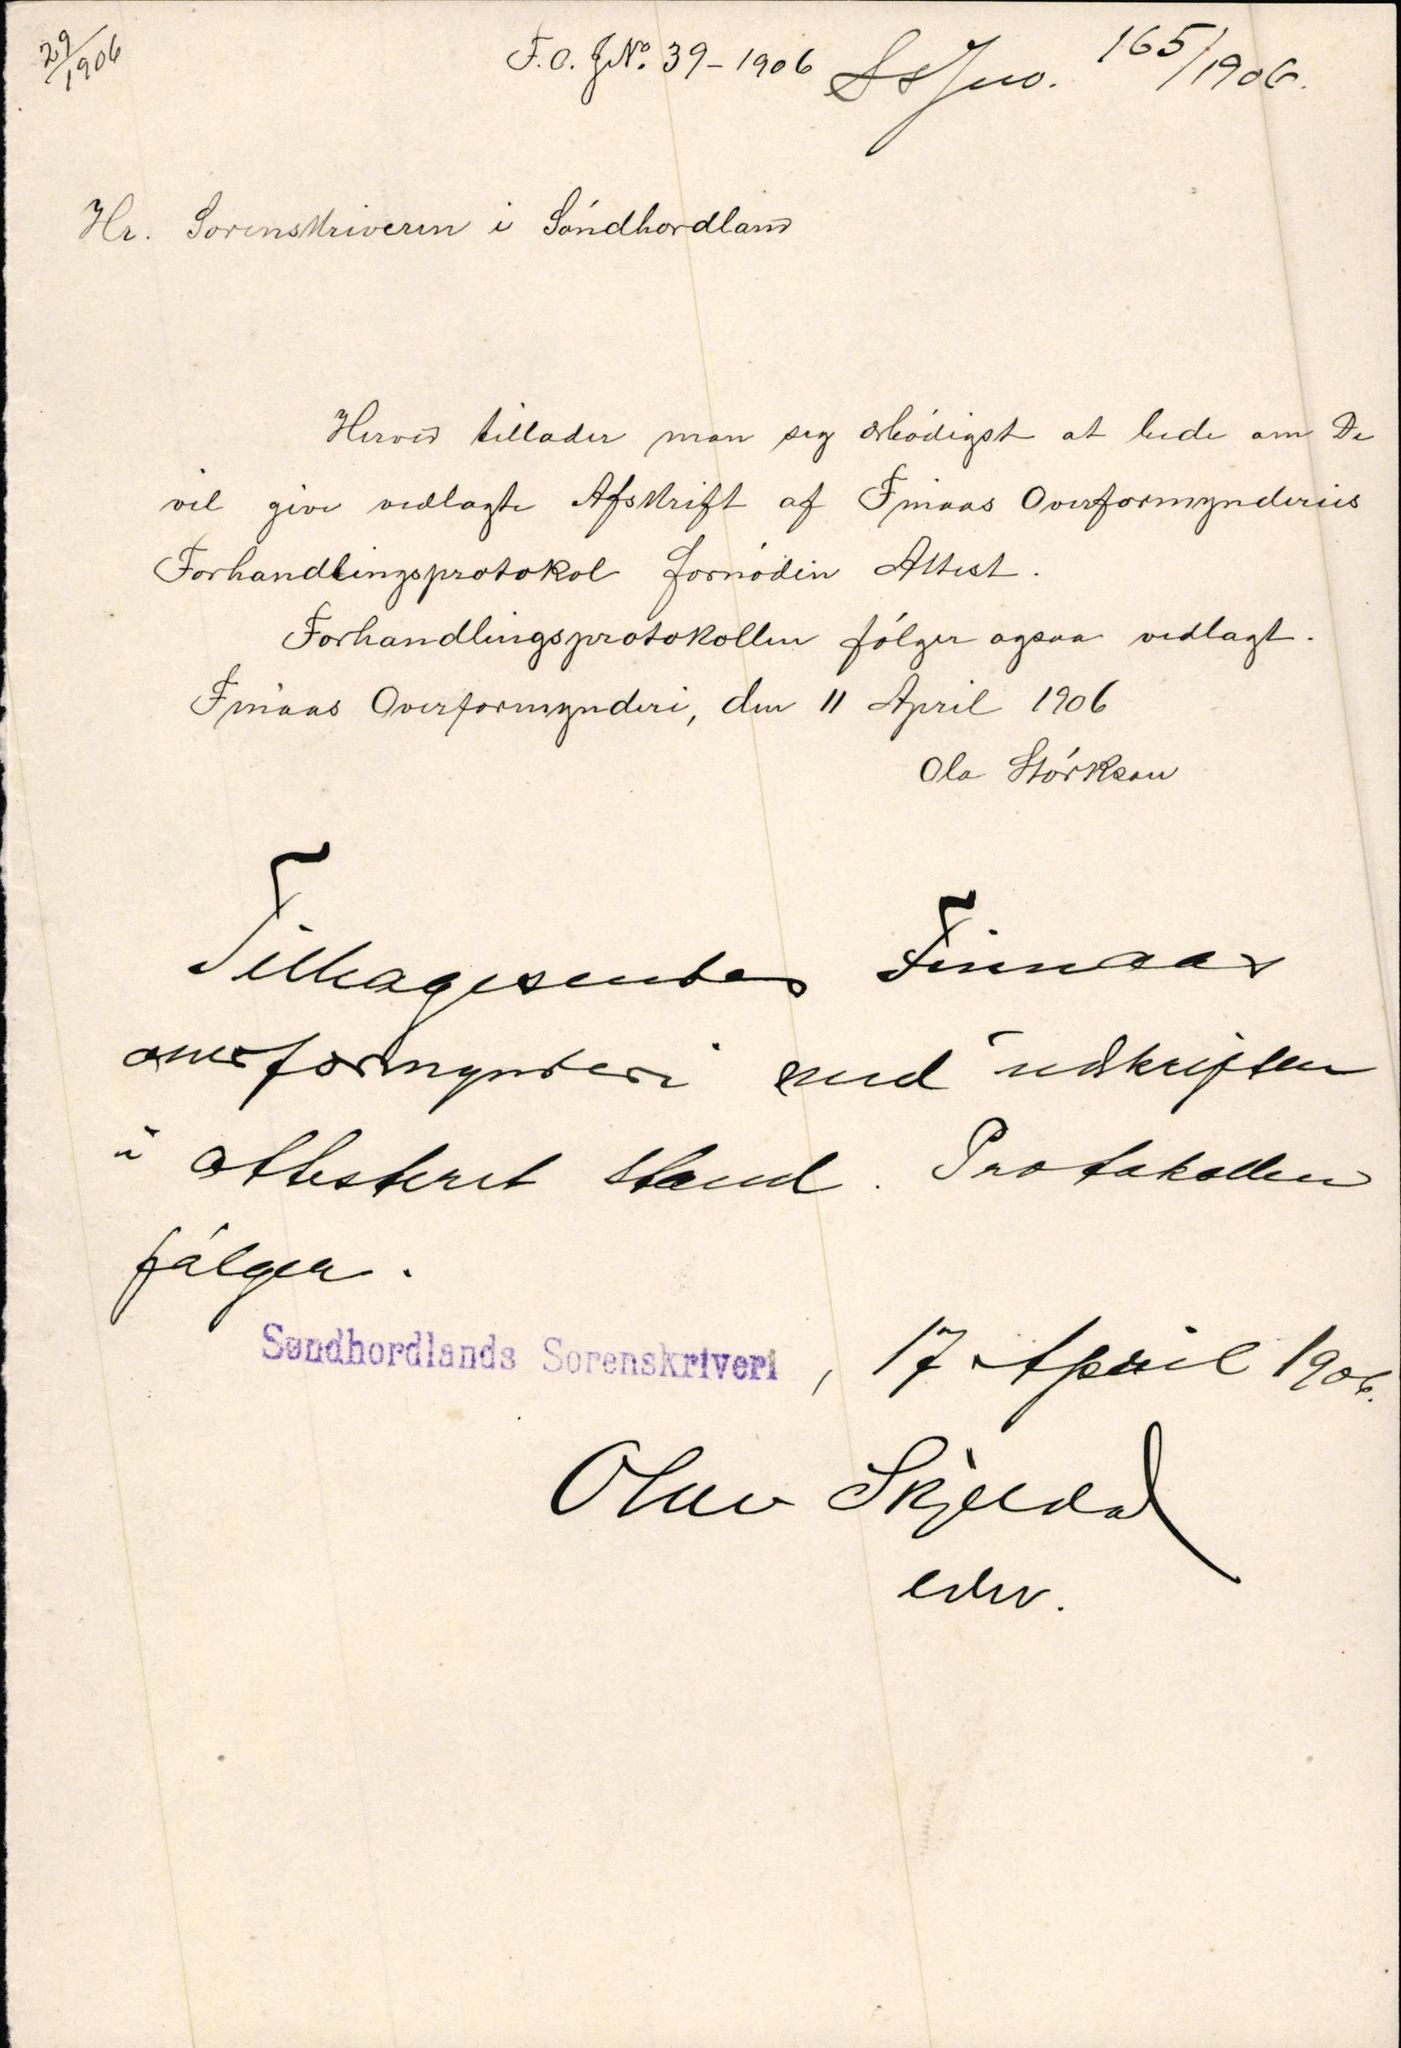 29/1906
F.O. JNo. 39-1906 SsJno. 165/1906.
Hr. Sorenskriveren i Söndhordland
Herved tillader man seg ærbödigst at bede om De
vil give vedlagte Afskrift af Finaas Overformynderies
Forhandlingsprotokol fornöden Attest.
Forhandlingsprotokollen fölger ogsaa vedlagt.
Finaas Overformynderi, den 11 April 1906
Ola Störkson
Tilbagesendes Finnaas
overformynderi med udskriften
i attesteret stand. Protokollen
fölger.
Søndhordlands Sorenskriveri, 17 April 1906.
Olav Skjeldal
edsv.